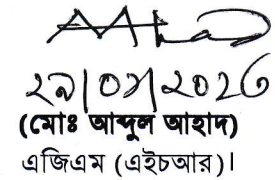 ২৯|০১|২০২৬
(মোঃ আব্দুল আহাদ)
এজিএম (এইচআর)।